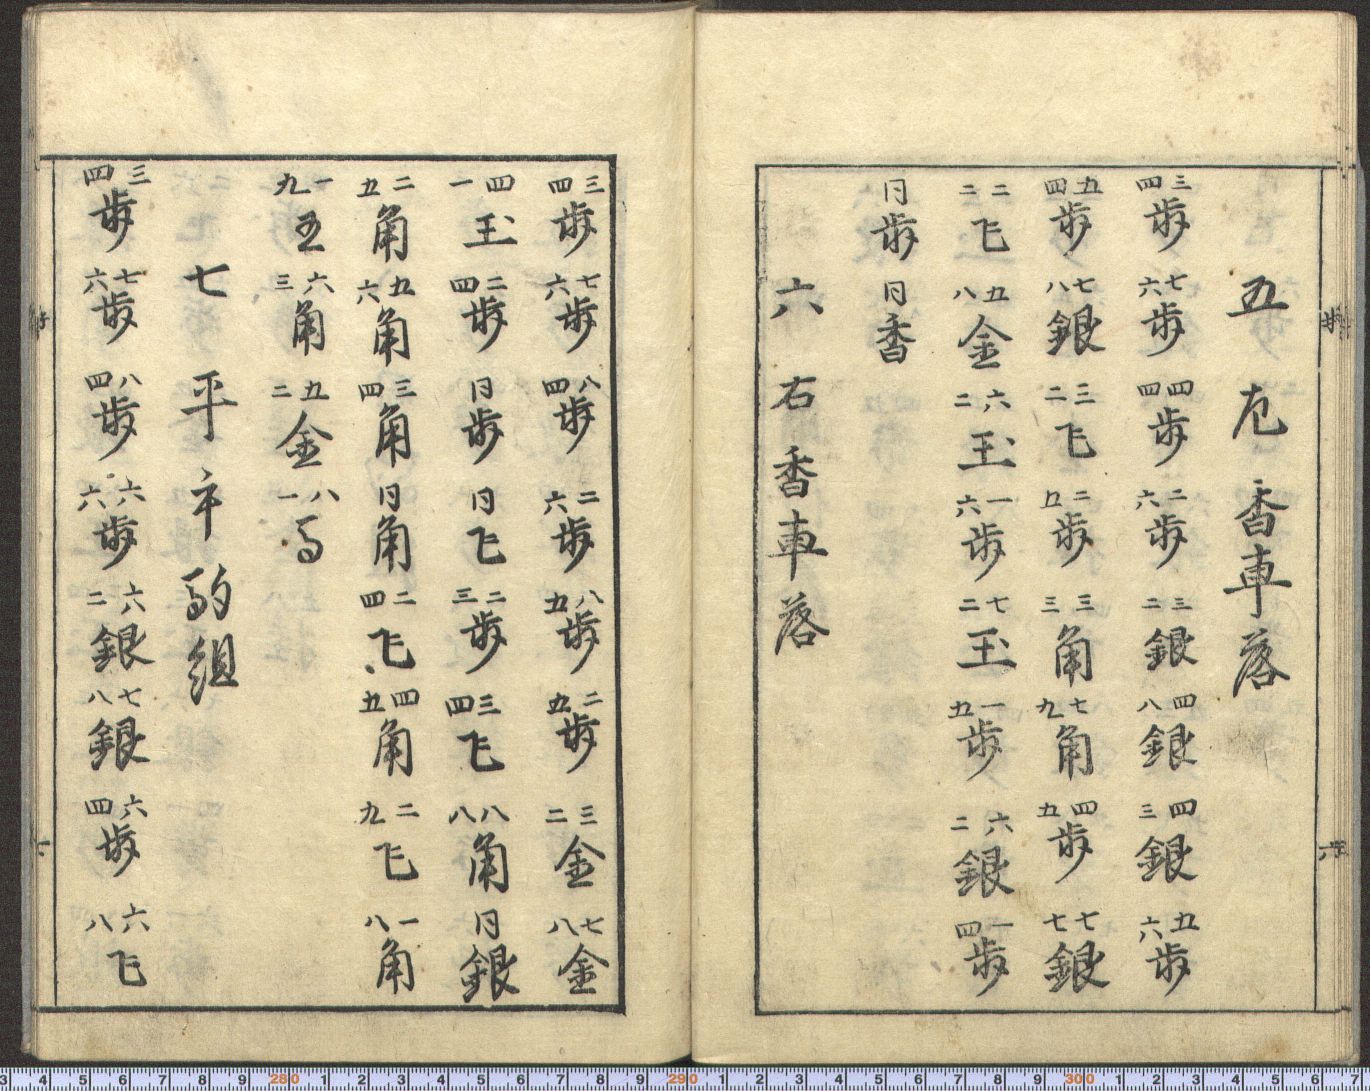 五 左香車落
三四歩 七六歩 四四歩 二六歩 三二銀 四八銀 四三銀 五六歩
五四歩 七八銀 三二飛 二五歩 三三角 七九角 四五歩 七七銀
二二飛 五八金 六二玉 一六歩 七二玉 一五歩 六二銀 一四歩
同歩 同香
六 右香車落
三四歩 七六歩 八四歩 二六歩 八五歩 二五歩 三二金 七八金
四一玉 二四歩 同歩 同飛 二三歩 三四飛 八八角 同銀
二五角 五六角 三四角 同角 二四飛 四五角 二九飛 一八角
一九玉 六三角 五二金 八一馬
七 平手駒組
三四歩 七六歩 八四歩 六六歩 六二銀 七八銀 六四歩 六八飛